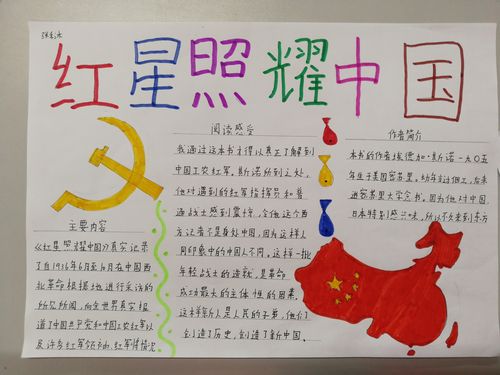 红星照耀中国
阅读感受
我通过这本书才得以真正了解到
中国工农红军。斯诺所到之处,
他对遇到的红军指挥员和普
通战士感到震惊,令他这个西
方记者不是身处中国,因为这样人
同印象中的中国人不同。这样一批
年轻战士的造就,是革命
成功最大的主体性的因素,
这本年轻人是人民的子弟,他们
创造了历史,创造了新中国。
作者简介
本书的作者埃德加·斯诺一九〇五
年生于美国密苏里。幼年当过佃工,后来
进密苏里大学念书。因为他对中国,
日本特别感兴味,所以不久来到东方
主要内容
《红星照耀中国》真实记录
了自1936年6月至10月在中国西
北革命根据地进行采访的
所见所闻,向全世界真实报
道了中国共产党和中国工农红军以
及许多红军领袖、红军将情况